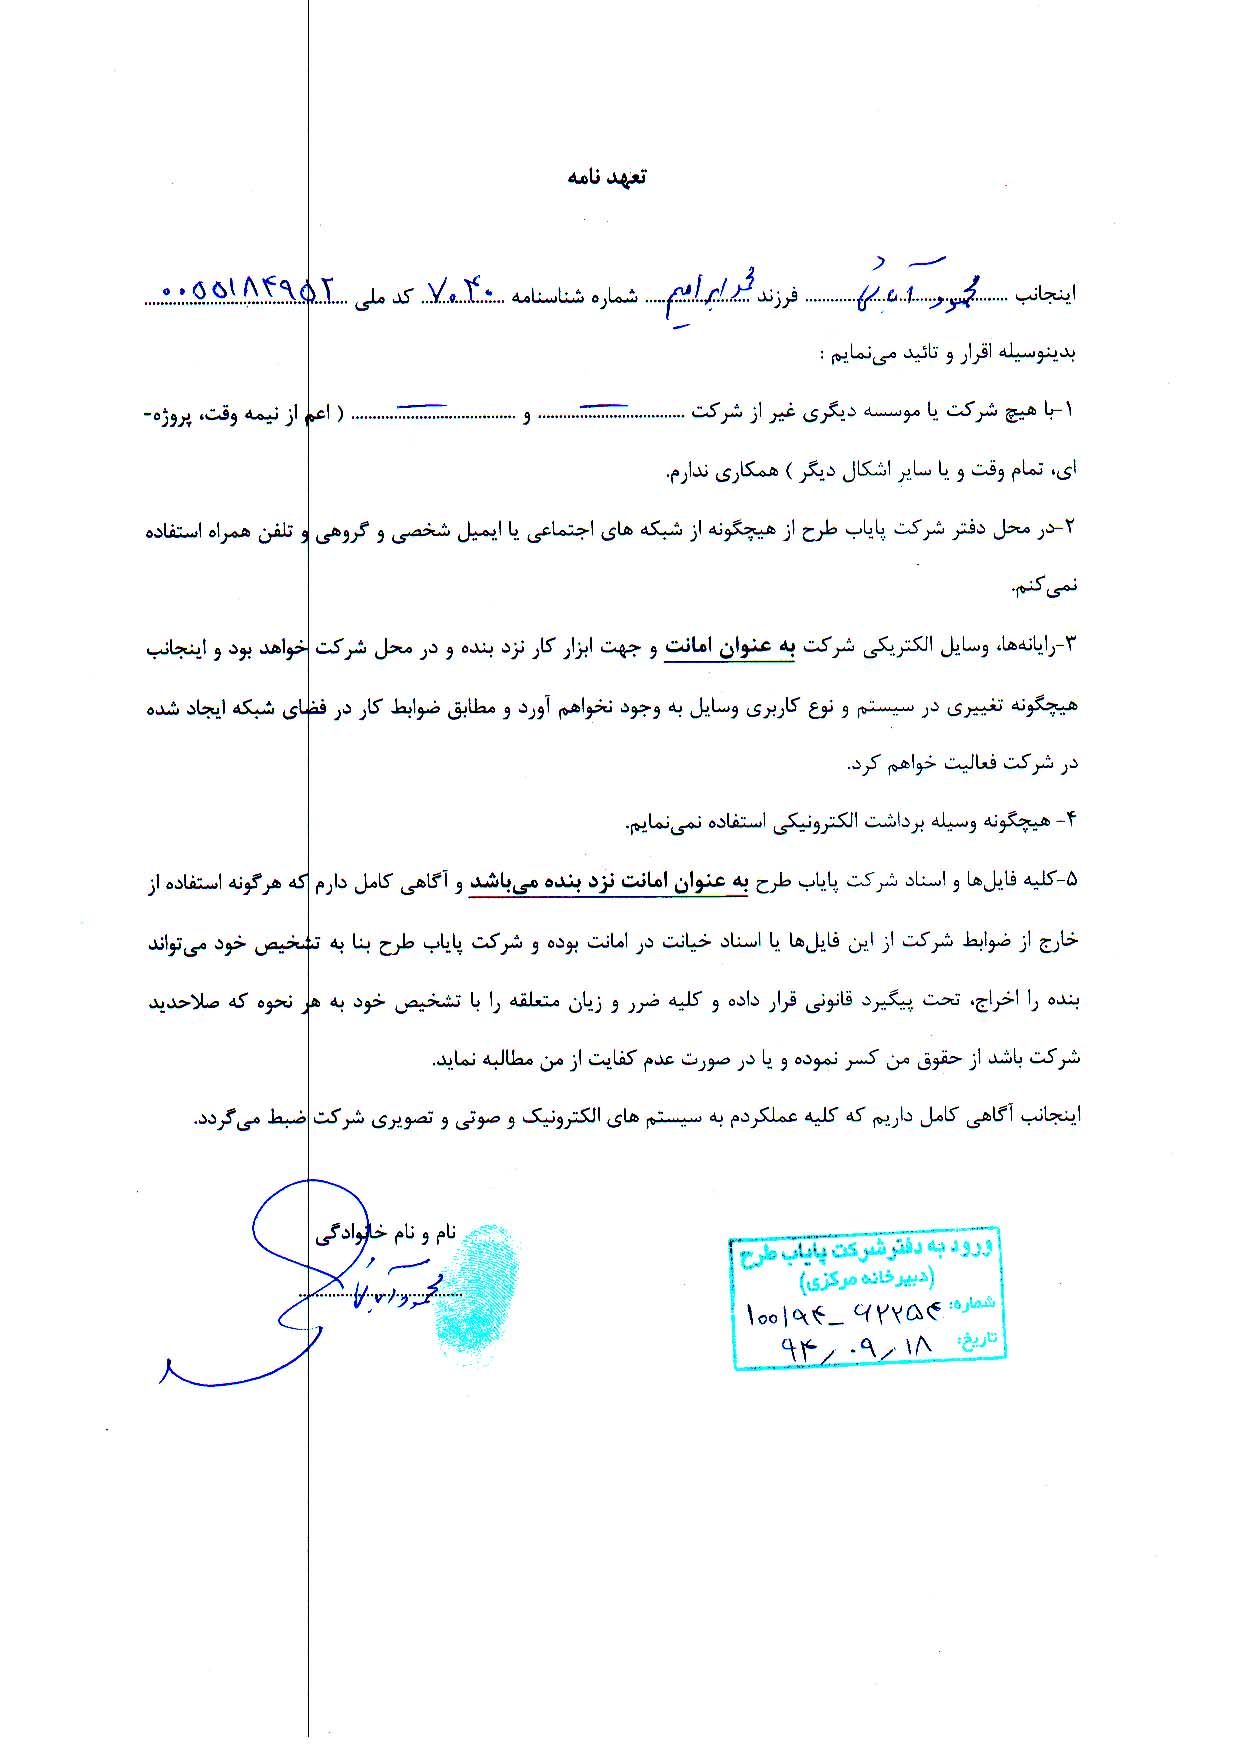 تعهد نامه
اینجانب محمود ........ فرزند محمد ابراهیم شماره شناسنامه ۷۰۴۰ کد ملی ۰۰۵۵۱۸۴۹۵۲
بدینوسیله اقرار و تائید می‌نمایم :
۱-با هیچ شرکت یا موسسه دیگری غیر از شرکت ........ و ........ ( اعم از نیمه وقت، پروژه-
ای، تمام وقت و یا سایر اشکال دیگر ) همکاری ندارم.
۲-در محل دفتر شرکت پایاب طرح از هیچگونه از شبکه های اجتماعی یا ایمیل شخصی و گروهی و تلفن همراه استفاده
نمی‌کنم.
۳-رایانه‌ها، وسایل الکتریکی شرکت به عنوان امانت و جهت ابزار کار نزد بنده و در محل شرکت خواهد بود و اینجانب
هیچگونه تغییری در سیستم و نوع کاربری وسایل به وجود نخواهم آورد و مطابق ضوابط کار در فضای شبکه ایجاد شده
در شرکت فعالیت خواهم کرد.
۴- هیچگونه وسیله برداشت الکترونیکی استفاده نمی‌نمایم.
۵-کلیه فایل‌ها و اسناد شرکت پایاب طرح به عنوان امانت نزد بنده می‌باشد و آگاهی کامل دارم که هرگونه استفاده از
خارج از ضوابط شرکت از این فایل‌ها یا اسناد خیانت در امانت بوده و شرکت پایاب طرح بنا به تشخیص خود می‌تواند
بنده را اخراج، تحت پیگیرد قانونی قرار داده و کلیه ضرر و زیان متعلقه را با تشخیص خود به هر نحوه که صلاحدید
شرکت باشد از حقوق من کسر نموده و یا در صورت عدم کفایت از من مطالبه نماید.
اینجانب آگاهی کامل داریم که کلیه عملکردم به سیستم های الکترونیک و صوتی و تصویری شرکت ضبط می‌گردد.
نام و نام خانوادگی
محمود
ورود به دفتر شرکت پایاب طرح
(دبیرخانه مرکزی)
شماره: ۱۰۰۱۹۴-۹۲۲۵۴
تاریخ: ۹۴/۰۹/۱۸